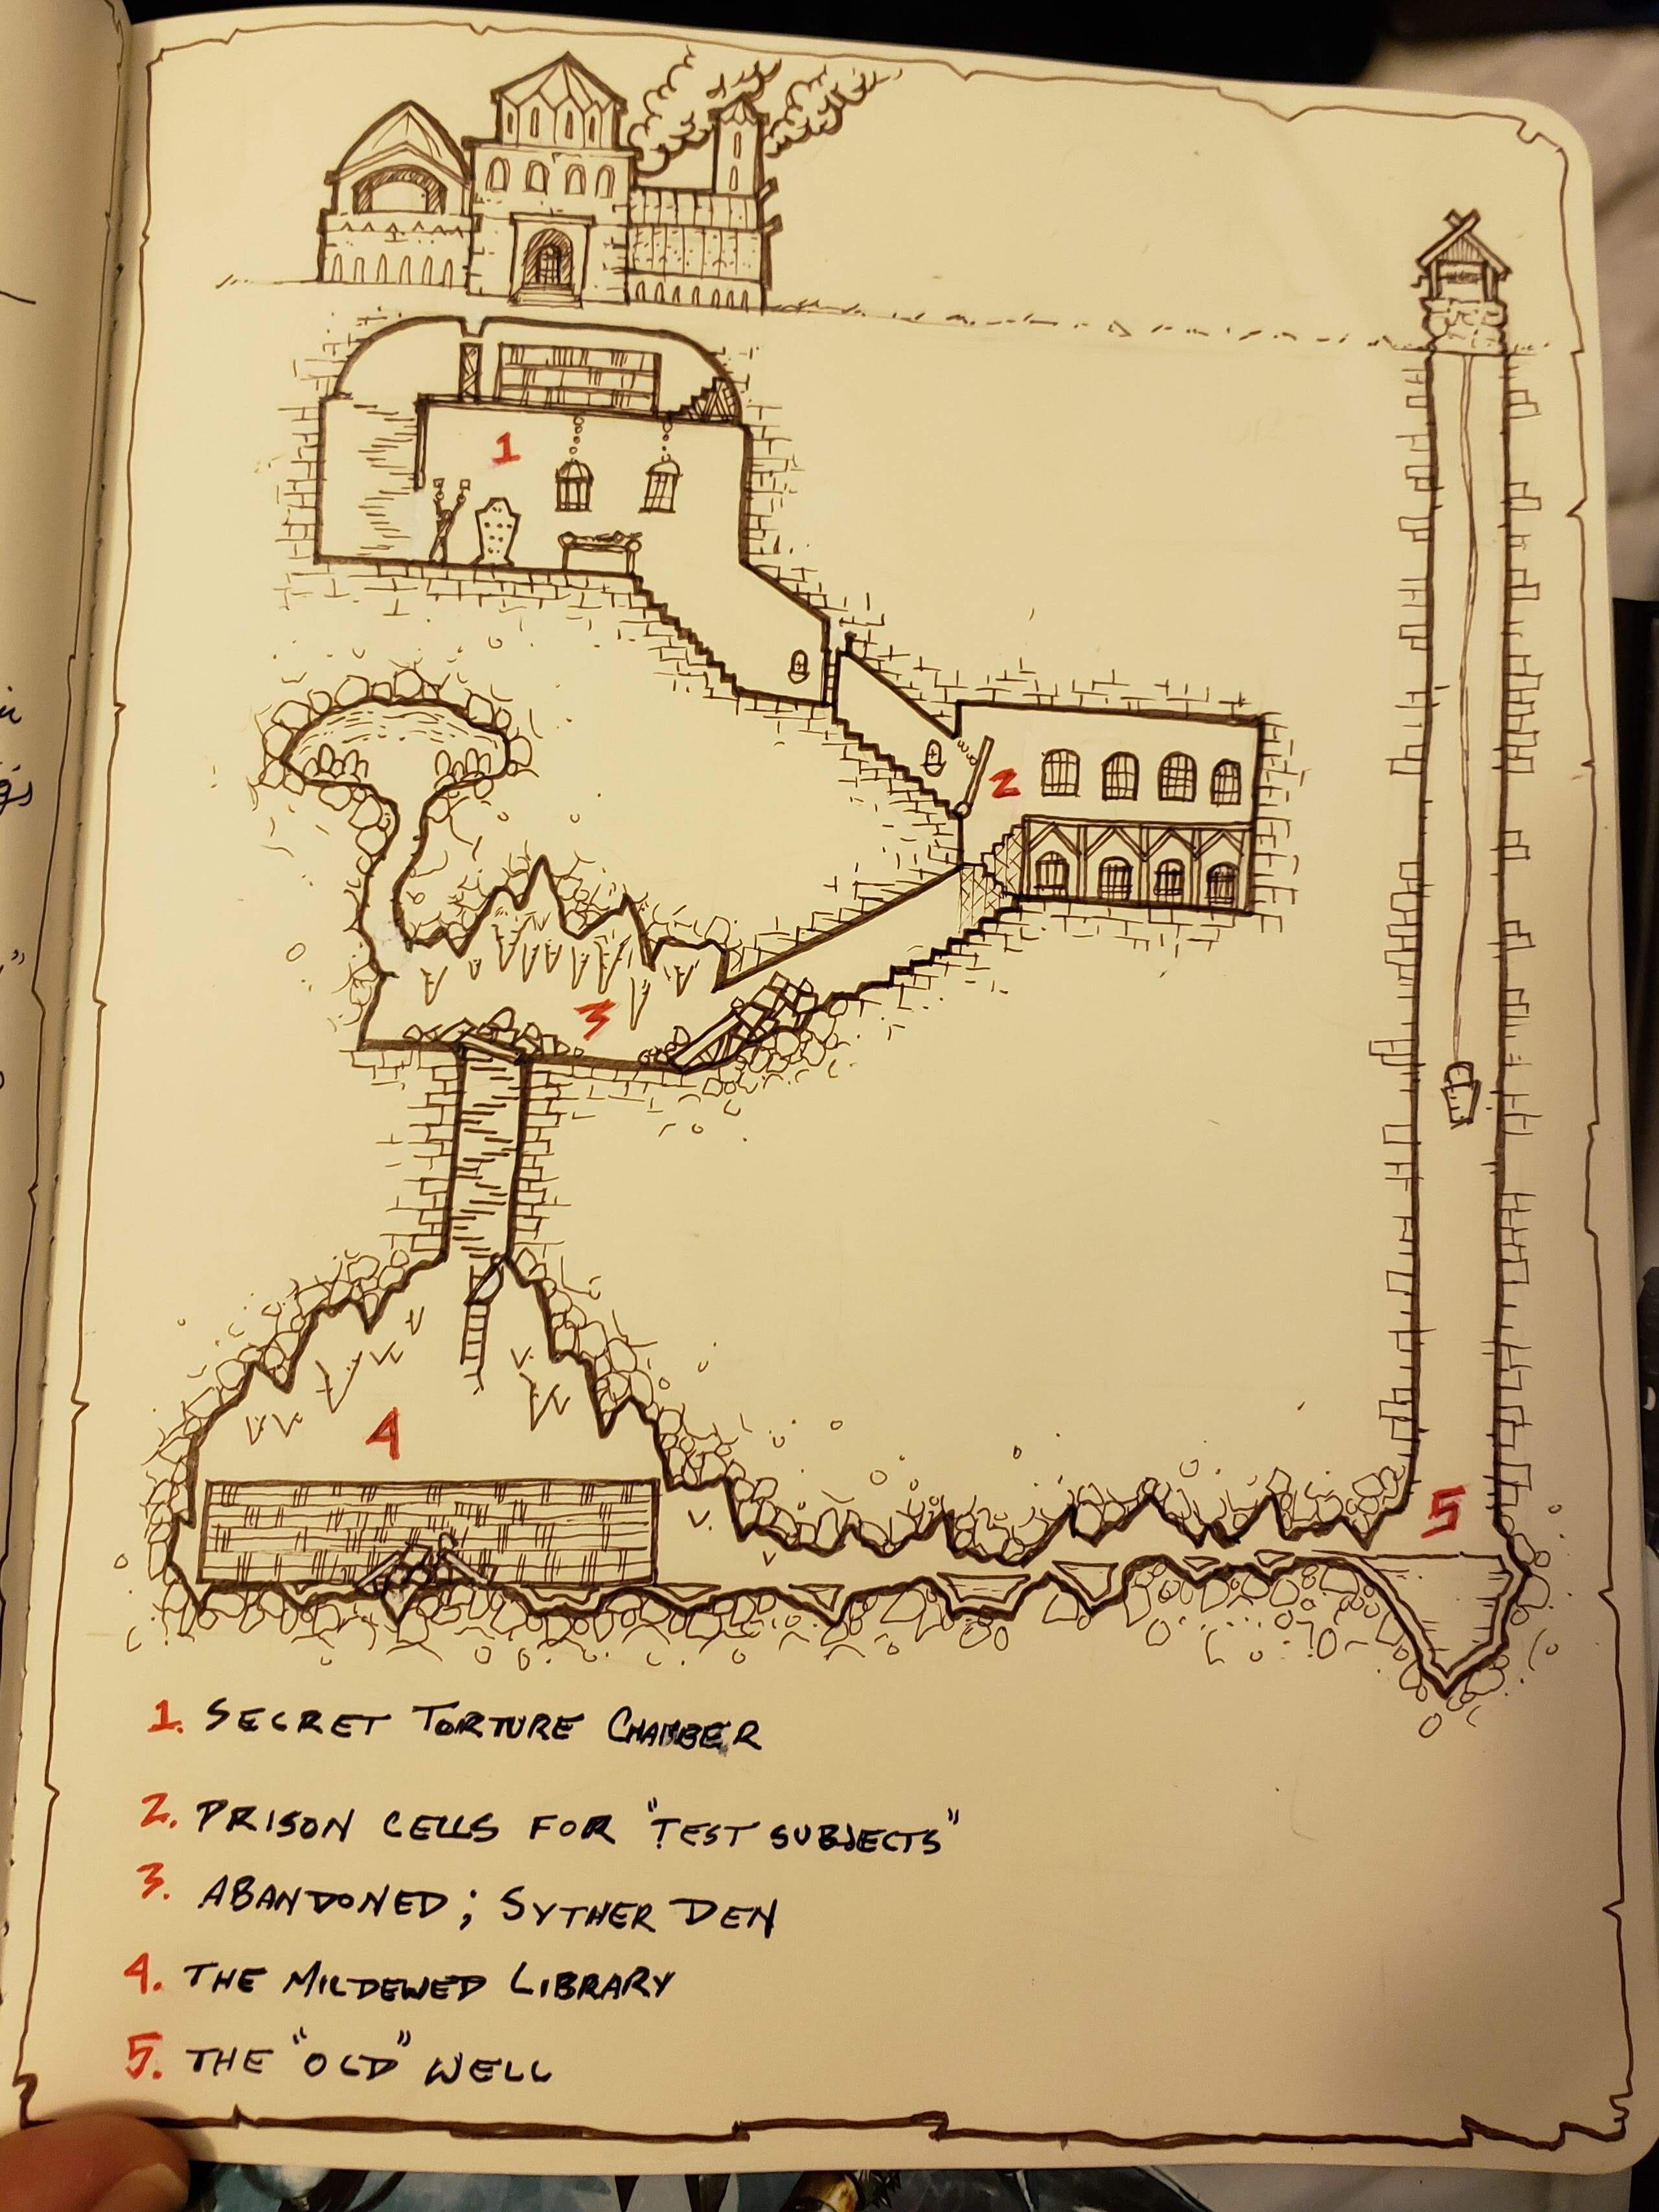 1
2
3
4
5
1. SECRET TORTURE CHAMBER
2. PRISON CELLS FOR "TEST SUBJECTS"
3. ABANDONED; SYTHER DEN
4. THE MILDEWED LIBRARY
5. THE "OLD" WELL